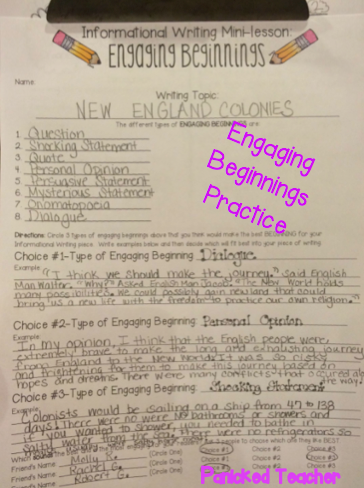 Informational Writing Mini-lesson:
ENGAGING BEGINNINGS
Name:
Writing Topic:
NEW ENGLAND COLONIES
The different types of ENGAGING BEGINNINGS are:
1. Question
2. Shocking Statement
3. Quote
4. Personal Opinion
5. Persuasive Statement
6. Mysterious Statement
7. Onomatopoeia
8. Dialogue
Engaging
Beginnings
Practice
Directions: Circle 3 types of engaging beginnings above that you think would make the best BEGINNING for your
Informational Writing piece. Write examples below and then decide which will fit best into your piece of writing.
Choice #1-Type of Engaging Beginning: Dialogue
Example:
"I think we should make the journey." said English
Man Walter. "Why?" Asked English Man Jacob. "The New World holds
many possibilities. We could possibly gain new land that could
bring us a new life with the freedom to practice our own religion."
Choice #2-Type of Engaging Beginning: Personal Opinion
Example:
In my opinion, I think that the English people were
extremely brave to make the long and exhausting journey
from England to the New World. It was so risky
and frightening for them to make this journey based on
hopes and dreams. There were many conflicts that occured along
the way.
Choice #3-Type of Engaging Beginning: Shocking Statement
Example:
Colonists would be sailing on a ship from 47 to 138
days! There were no were no bathrooms or showers and
if you wanted to shower, you needed to bathe in
salty water from the sea. There were no refrigerators so
people to choose which one they like BEST
Friend's Name: Molly G. (Circle One) Choice #1 Choice #2 Choice #3
Friend's Name: Rachel G. (Circle One) Choice #1 Choice #2 Choice #3
Friend's Name: Robert G. (Circle One) Choice #1 Choice #2 Choice #3
Panicked Teacher